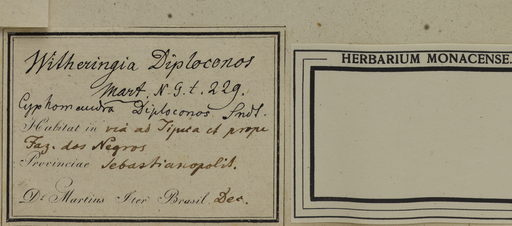 Witheringia Diploconos
Mart. N. G. t. 229.
Cyphomandra Diploconos Sndt.
Habitat in via ad Tijuca et prope
Faz. dos Negros
Provinciae Sebastianopolit.
Dr Martius Iter Brasil. Dec.
HERBARIUM MONACENSE.